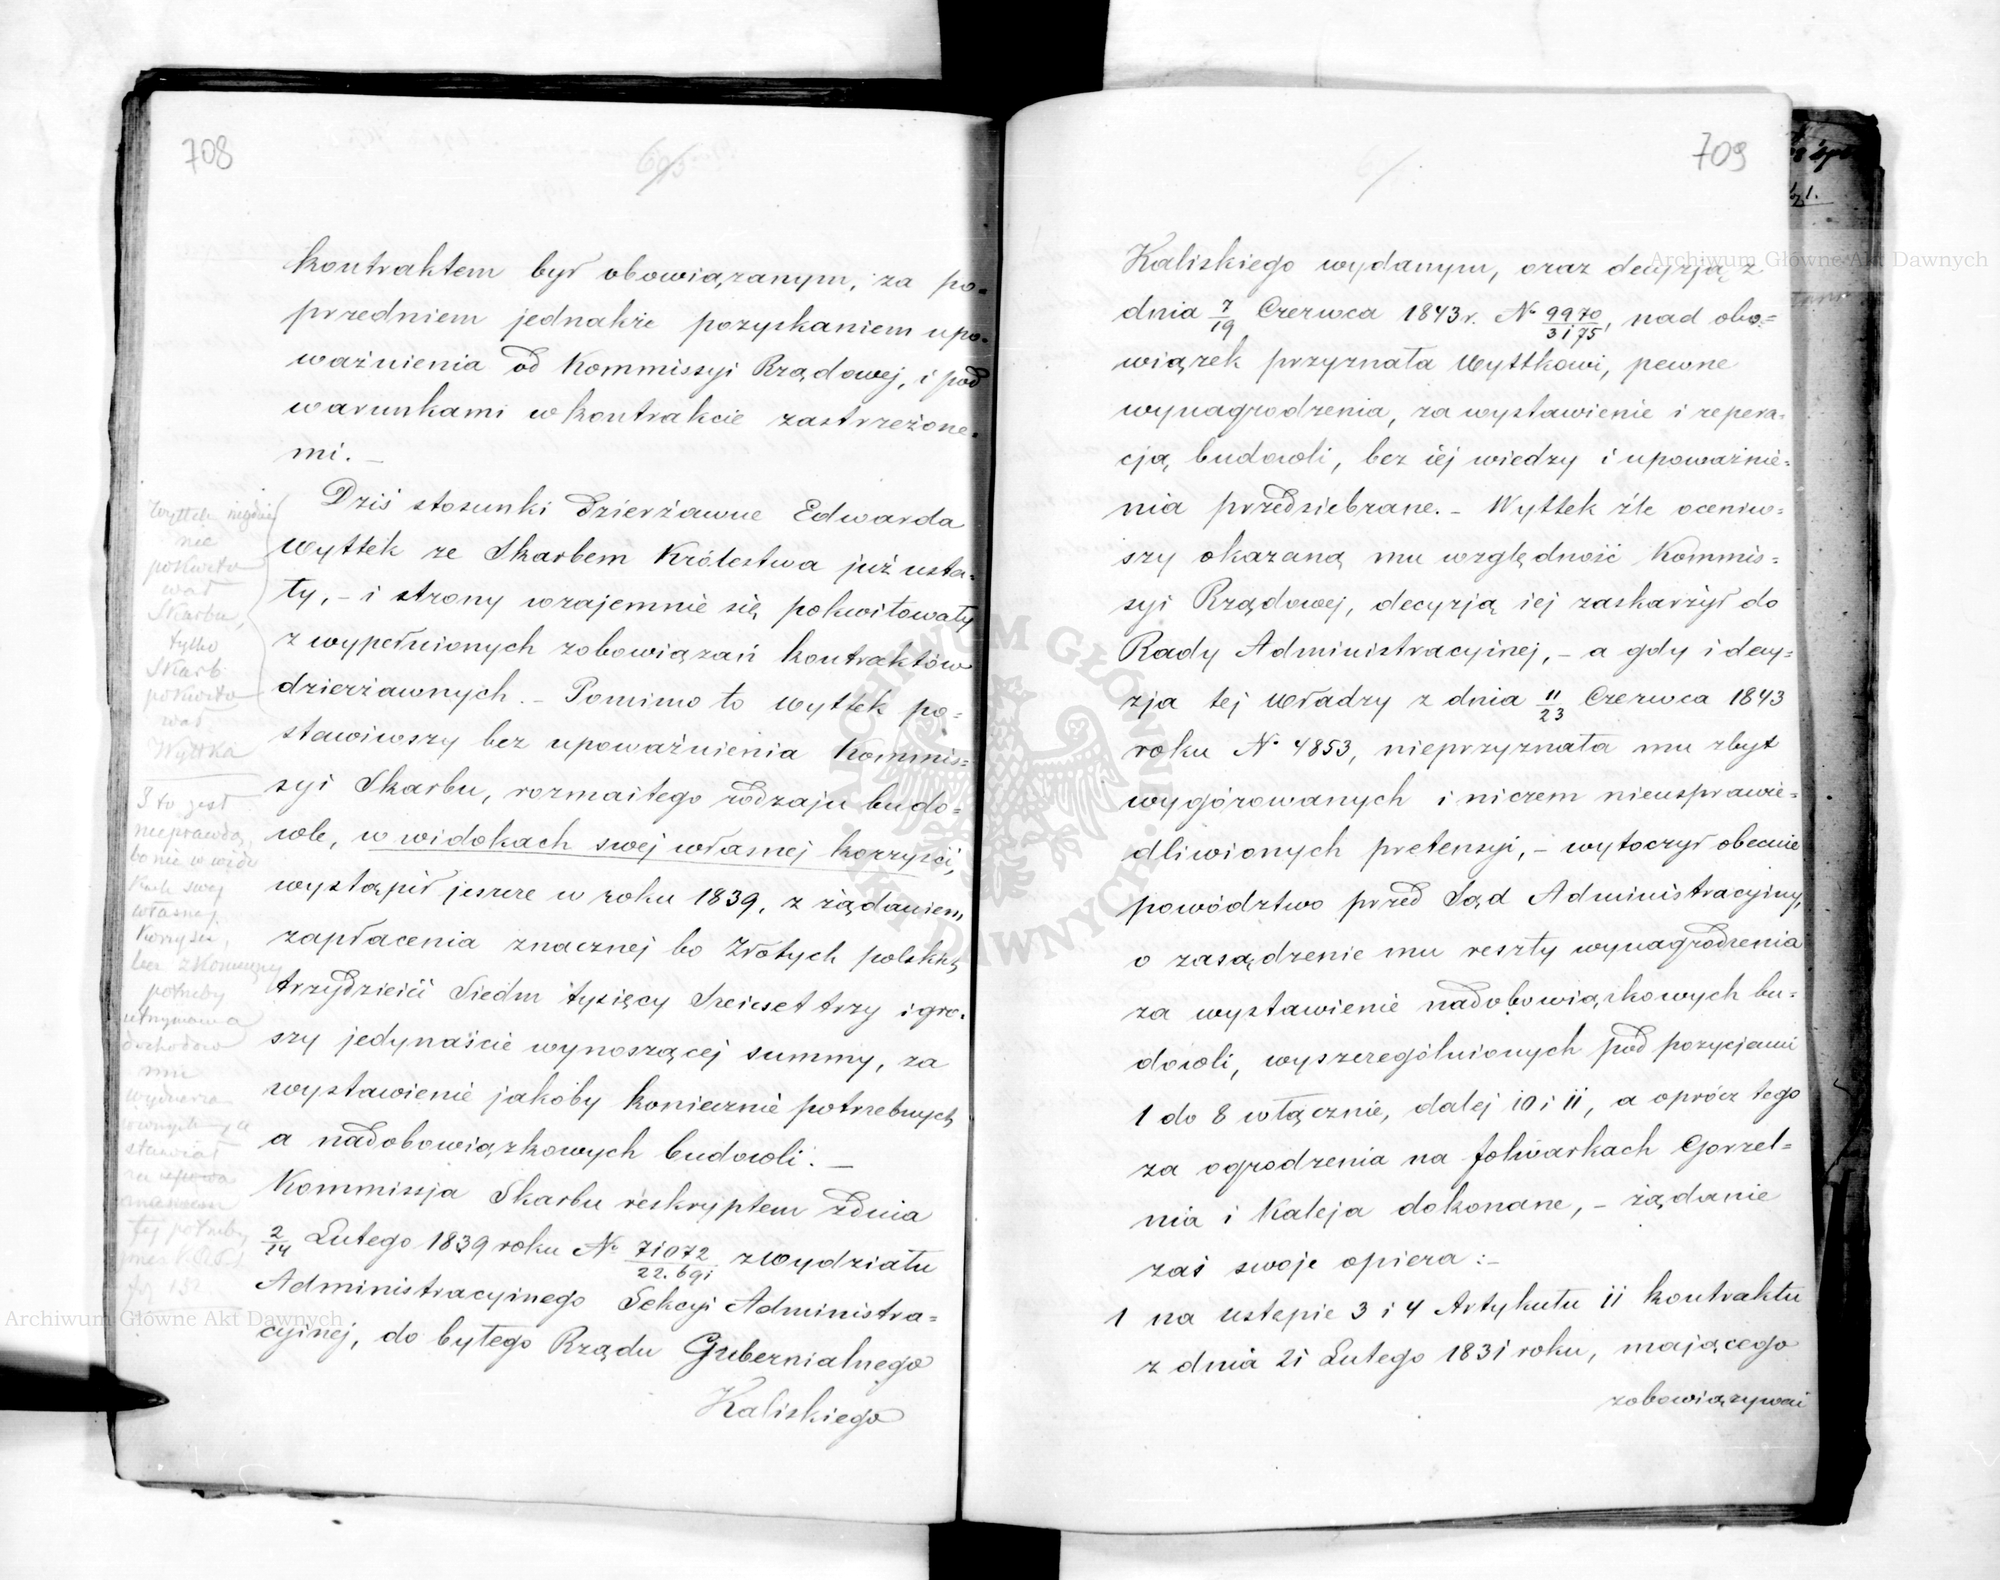 708
kontraktem był obowiązanym, za po=
przedniem jednakże pozyskaniem upo=
ważnienia od Kommissyi Rządowej, i pod
warunkami w kontrakcie zastrzeżone=
mi. —
Dziś stosunki dzierżawne Edwarda
Wyttek ze Skarbem Królestwa już usta=
ły, – i strony wzajemnie się pokwitowały
z wypełnionych zobowiązań kontraktów
dzierżawnych. – Pomimo to Wyttek po=
stawiwszy bez upoważnienia Kommis=
syi Skarbu, rozmaitego rodzaju budo=
wle, w widokach swej własnej korzyści,
wystąpił jeszcze w roku 1839, z żądaniem
zapłacenia znacznej bo Złotych polskich
trzydzieści Siedm tysięcy Sześcset trzy i gro=
szy jedynaście wynoszącej summy, za
wystawienie jakoby koniecznie potrzebnych
a nadobowiązkowych budowli. —
Kommissja Skarbu reskryptem z dnia
2/14 Lutego 1839 roku No 71072/22.691 z Wydziału
Administracyjnego Sekcyi Administra=
cyjnej, do byłego Rządu Gubernialnego
Kaliskiego
Wyttek nigdzie
nie
pokwito
wał
Skarbu,
tylko
Skarb
pokwito
wał
Wyttka
I to jest
nieprawdą,
bo nie w wido
kach swej
własnej
korzyści,
lecz z koniecznej
potrzeby
utrzymania
dochodów
709
Kaliskiego wydanym, oraz decyzją z
dnia 7/19 Czerwca 1843 r. No 9970/3175, nad obo=
wiązek przyznała Wyttkowi, pewne
wynagrodzenia, za wystawienie i repera=
cją budowli, bez iéj wiedzy i upoważnie=
nia przedsiebrane. – Wyttek źle oceniw=
szy okazaną mu względność Kommis=
syi Rządowej, decyzją iej zaskarżył do
Rady Administracyjnej, – a gdy i decy=
zja tej Władzy z dnia 11/23 Czerwca 1843
roku No 4853, nieprzyznała mu zbyt
wygórowanych i niczem nieusprawie=
dliwionych pretensyi, – wytoczył obecnie
powództwo przed Sąd Administracyjny,
o zasądzenie mu reszty wynagrodzenia
za wystawienie nadobowiązkowych bu=
dowli, wyszczególnionych pod pozycjami
1 do 8 włącznie, dalej 10 i 11, a oprócz tego
za ogrodzenia na folwarkach Gorzel=
nia i Kaleja dokonane, – żądanie
zaś swoje opiera :–
1 na ustępie 3 i 4 Artykułu 11 kontraktu
z dnia 21 Lutego 1831 roku, mającego
zobowiązywać
Archiwum Główne Akt Dawnych
Archiwum Główne Akt Dawnych
ARCHIWUM GŁÓWNE AKT DAWNYCH